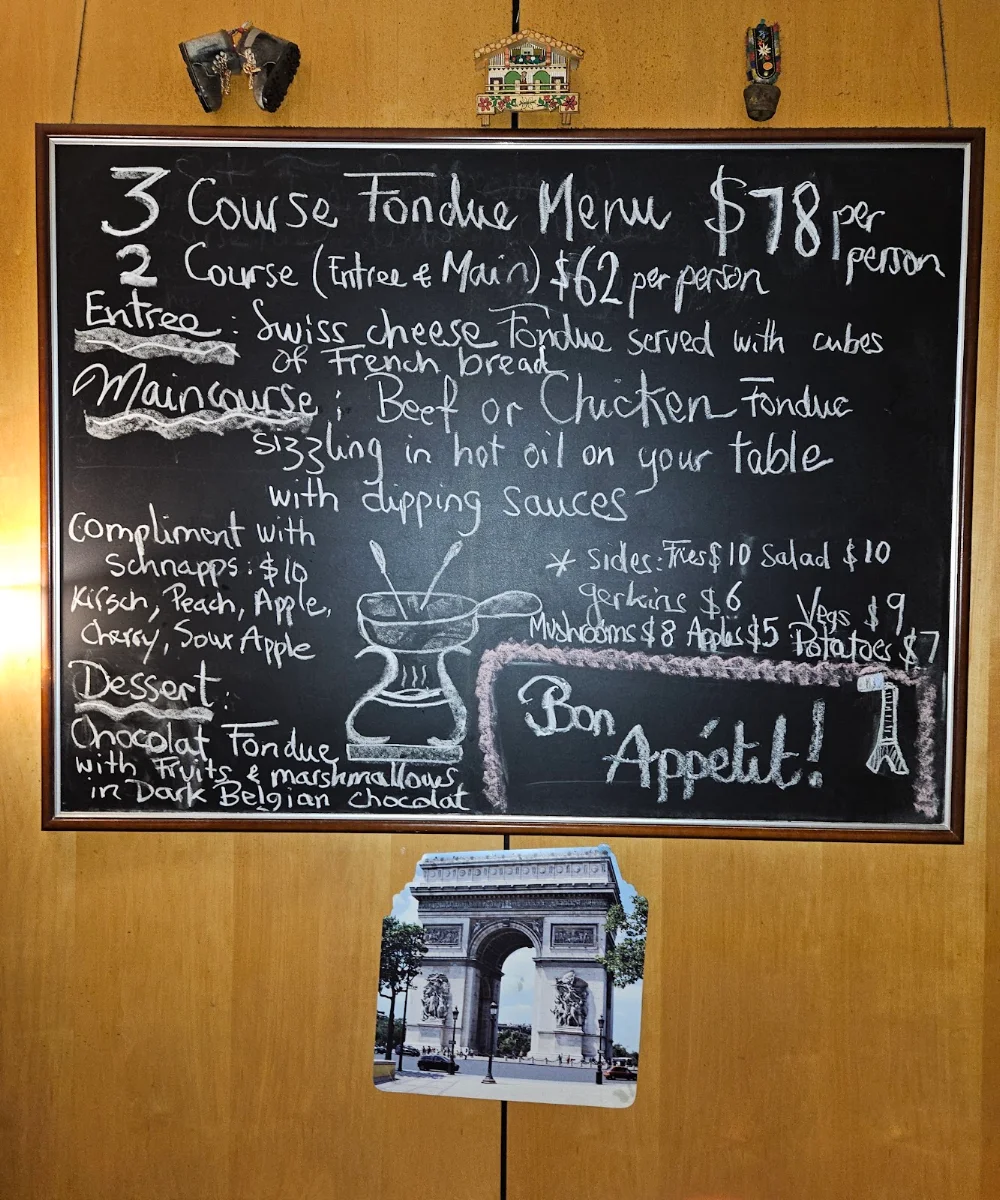 3 Course Fondue Menu $78 per person
2 Course (Entree & Main) $62 per person
Entree : Swiss cheese Fondue served with cubes
of French bread
Maincourse : Beef or Chicken Fondue
sizzling in hot oil on your table
with dipping sauces
Compliment with
Schnapps : $10
Kirsch, Peach, Apple,
Cherry, Sour Apple
* sides: Fries $10 Salad $10
gerkins $6 Vegs $9
Mushrooms $8 Apples $5 Potatoes $7
Dessert:
Chocolat Fondue
with Fruits & marshmallows
in Dark Belgian chocolat
Bon
Appétit!